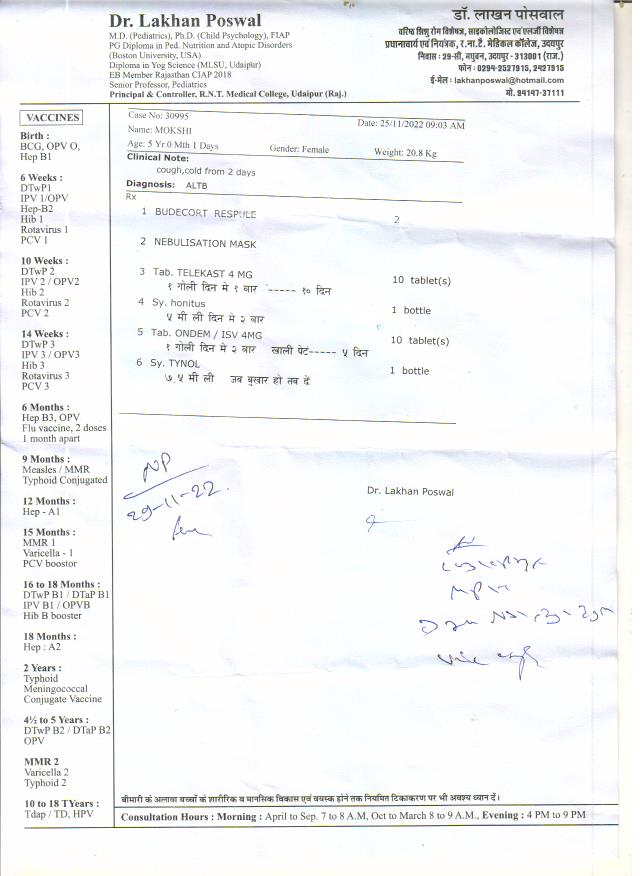 Dr. Lakhan Poswal
M.D. (Pediatrics), Ph.D. (Child Psychology), FIAP
PG Diploma in Ped. Nutrition and Atopic Disorders
(Boston University, USA)
Diploma in Yog Science (MLSU, Udaipur)
EB Member Rajasthan CIAP 2018
Senior Professor, Pediatrics
Principal & Controller, R.N.T. Medical College, Udaipur (Raj.)
डॉ. लाखन पोसवाल
वरिष्ठ शिशु रोग विशेषज्ञ, साइकोलोजिस्ट एवं एलर्जी विशेषज्ञ
प्रधानाचार्य एवं नियंत्रक, र.ना.टै. मेडिकल कॉलेज, उदयपुर
निवास : 29-सी, मधुबन, उदयपुर - 313001 (राज.)
फोन : 0294-2527915, 2427915
ई-मेल : lakhanposwal@hotmail.com
मो. 94147-37111
VACCINES
Birth :
BCG, OPV O,
Hep B1
6 Weeks :
DTwP1
IPV 1/OPV
Hep-B2
Hib 1
Rotavirus 1
PCV 1
10 Weeks :
DTwP 2
IPV 2 / OPV2
Hib 2
Rotavirus 2
PCV 2
14 Weeks :
DTwP 3
IPV 3 / OPV3
Hib 3
Rotavirus 3
PCV 3
6 Months :
Hep B3, OPV
Flu vaccine, 2 doses
1 month apart
9 Months :
Measles / MMR
Typhoid Conjugated
12 Months :
Hep - A1
15 Months :
MMR 1
Varicella - 1
PCV boostor
16 to 18 Months :
DTwP B1 / DTaP B1
IPV B1 / OPVB
Hib B booster
18 Months :
Hep : A2
2 Years :
Typhoid
Meningococcal
Conjugate Vaccine
4½ to 5 Years :
DTwP B2 / DTaP B2
OPV
MMR 2
Varicella 2
Typhoid 2
10 to 18 TYears :
Tdap / TD, HPV
Case No: 30995
Date: 25/11/2022 09:03 AM
Name: MOKSHI
Age: 5 Yr 0 Mth 1 Days Gender: Female Weight: 20.8 Kg
Clinical Note:
cough,cold from 2 days
Diagnosis: ALTB
Rx
1 BUDECORT RESPULE 2
2 NEBULISATION MASK
3 Tab. TELEKAST 4 MG 10 tablet(s)
१ गोली दिन मे १ बार ----- १० दिन
4 Sy. honitus 1 bottle
५ मी ली दिन मे २ बार
5 Tab. ONDEM / ISV 4MG 10 tablet(s)
१ गोली दिन मे २ बार खाली पेट----- ५ दिन
6 Sy. TYNOL 1 bottle
७.५ मी ली जब बुखार हो तब दें
NP
29-11-22.
Dr. Lakhan Poswal
बीमारी के अलावा बच्चों के शारीरिक व मानसिक विकास एवं वयस्क होने तक नियमित टिकाकरण पर भी अवश्य ध्यान दें।
Consultation Hours : Morning : April to Sep. 7 to 8 A.M, Oct to March 8 to 9 A.M., Evening : 4 PM to 9 PM